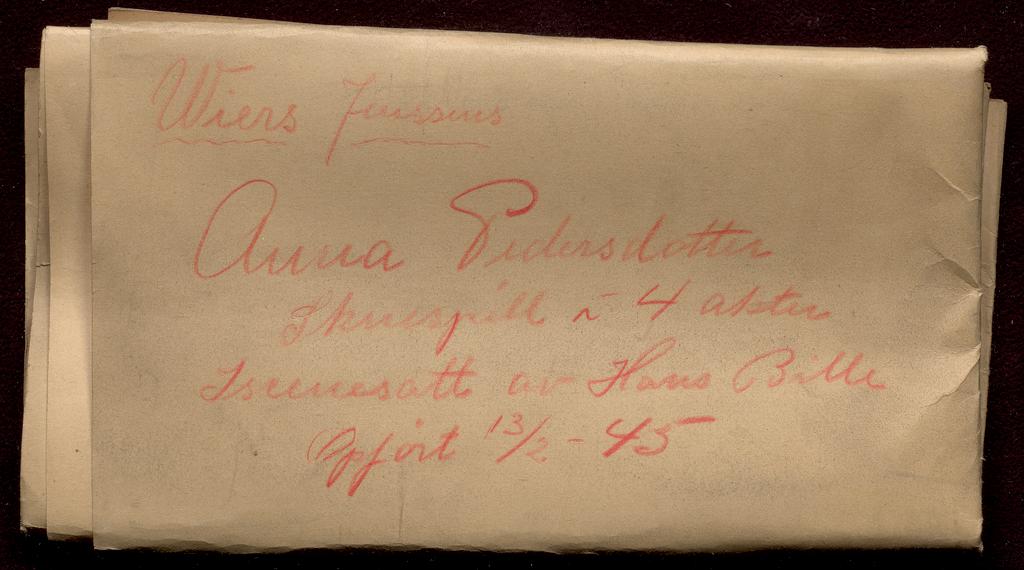 Wiers Jenssens
Anna Pedersdotter
Skuespill i 4 akter
Iscenesatt av Hans Bille
Opført 13/2 - 45